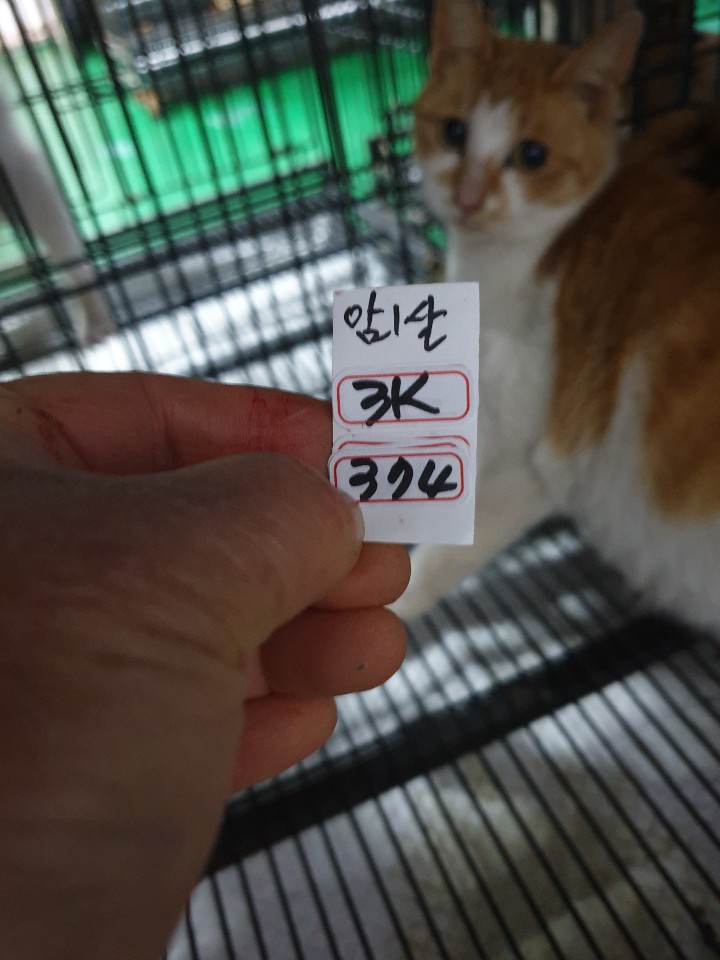 암1살
3K
374